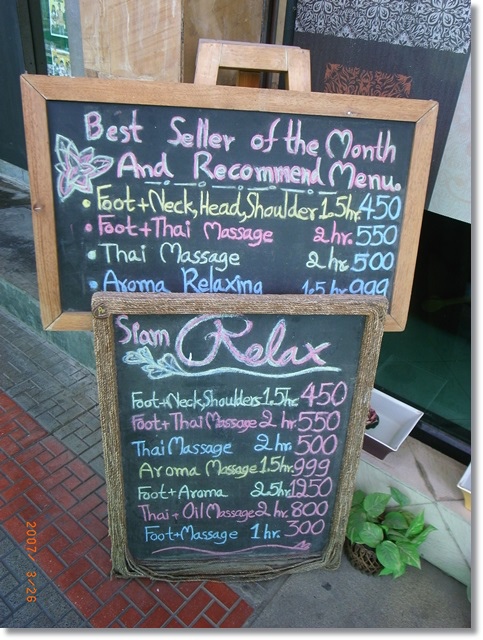 Best Seller of the Month
And Recommend Menu.
• Foot+Neck,Head,Shoulder 1.5hr. 450
• Foot+Thai Massage 2 hr. 550
• Thai Massage 2 hr. 500
• Aroma Relaxing 1.5 hr. 999
Siam Relax
Foot+Neck,Shoulders 1.5hr. 450
Foot+Thai Massage 2 hr. 550
Thai Massage 2 hr. 500
Aroma Massage 1.5hr. 999
Foot+Aroma 2.5hr. 1250
Thai+Oil Massage 2 hr. 800
Foot+Massage 1 hr. 300
2007 3/26